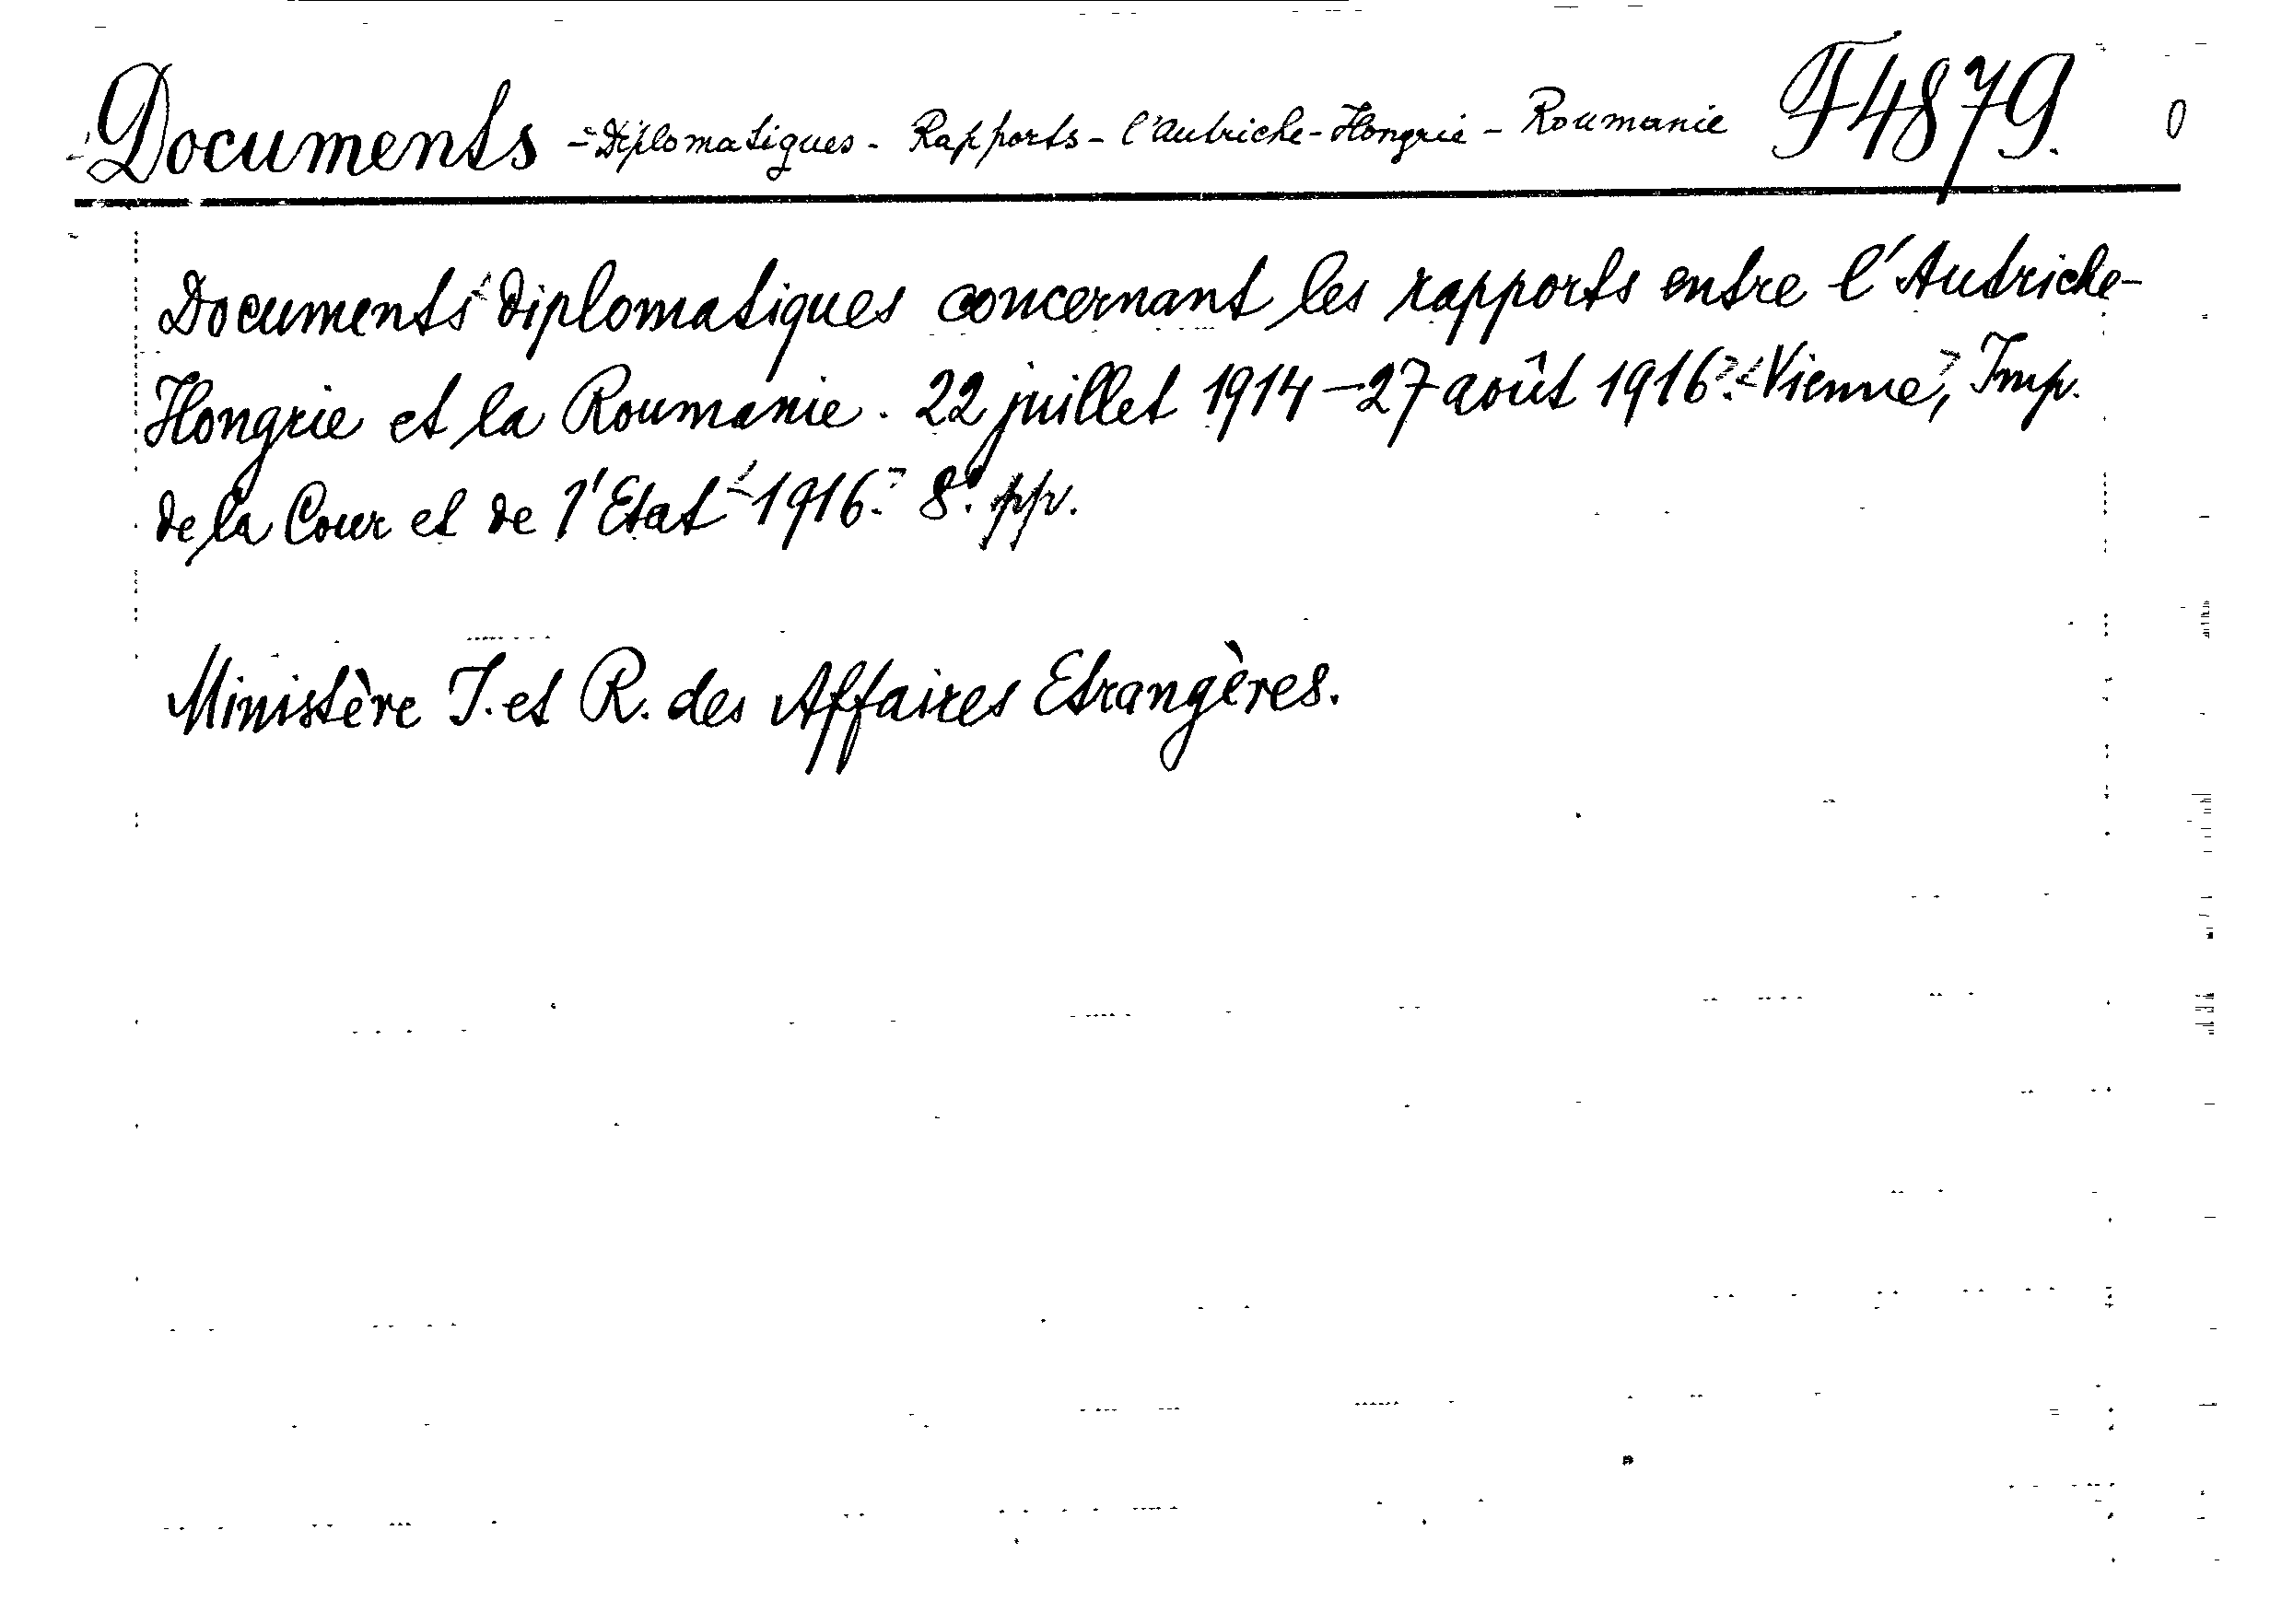 Documents - Diplomatiques - Rapports - l'Autriche-Hongrie - Roumanie F4879. 0
Documents diplomatiques concernant les rapports entre l'Autriche-
Hongrie et la Roumanie. 22 juillet 1914-27 août 1916. Vienne, Imp.
de la Cour et de l'Etat 1916. 8°. pp.
Ministère I. et R. des Affaires Etrangères.